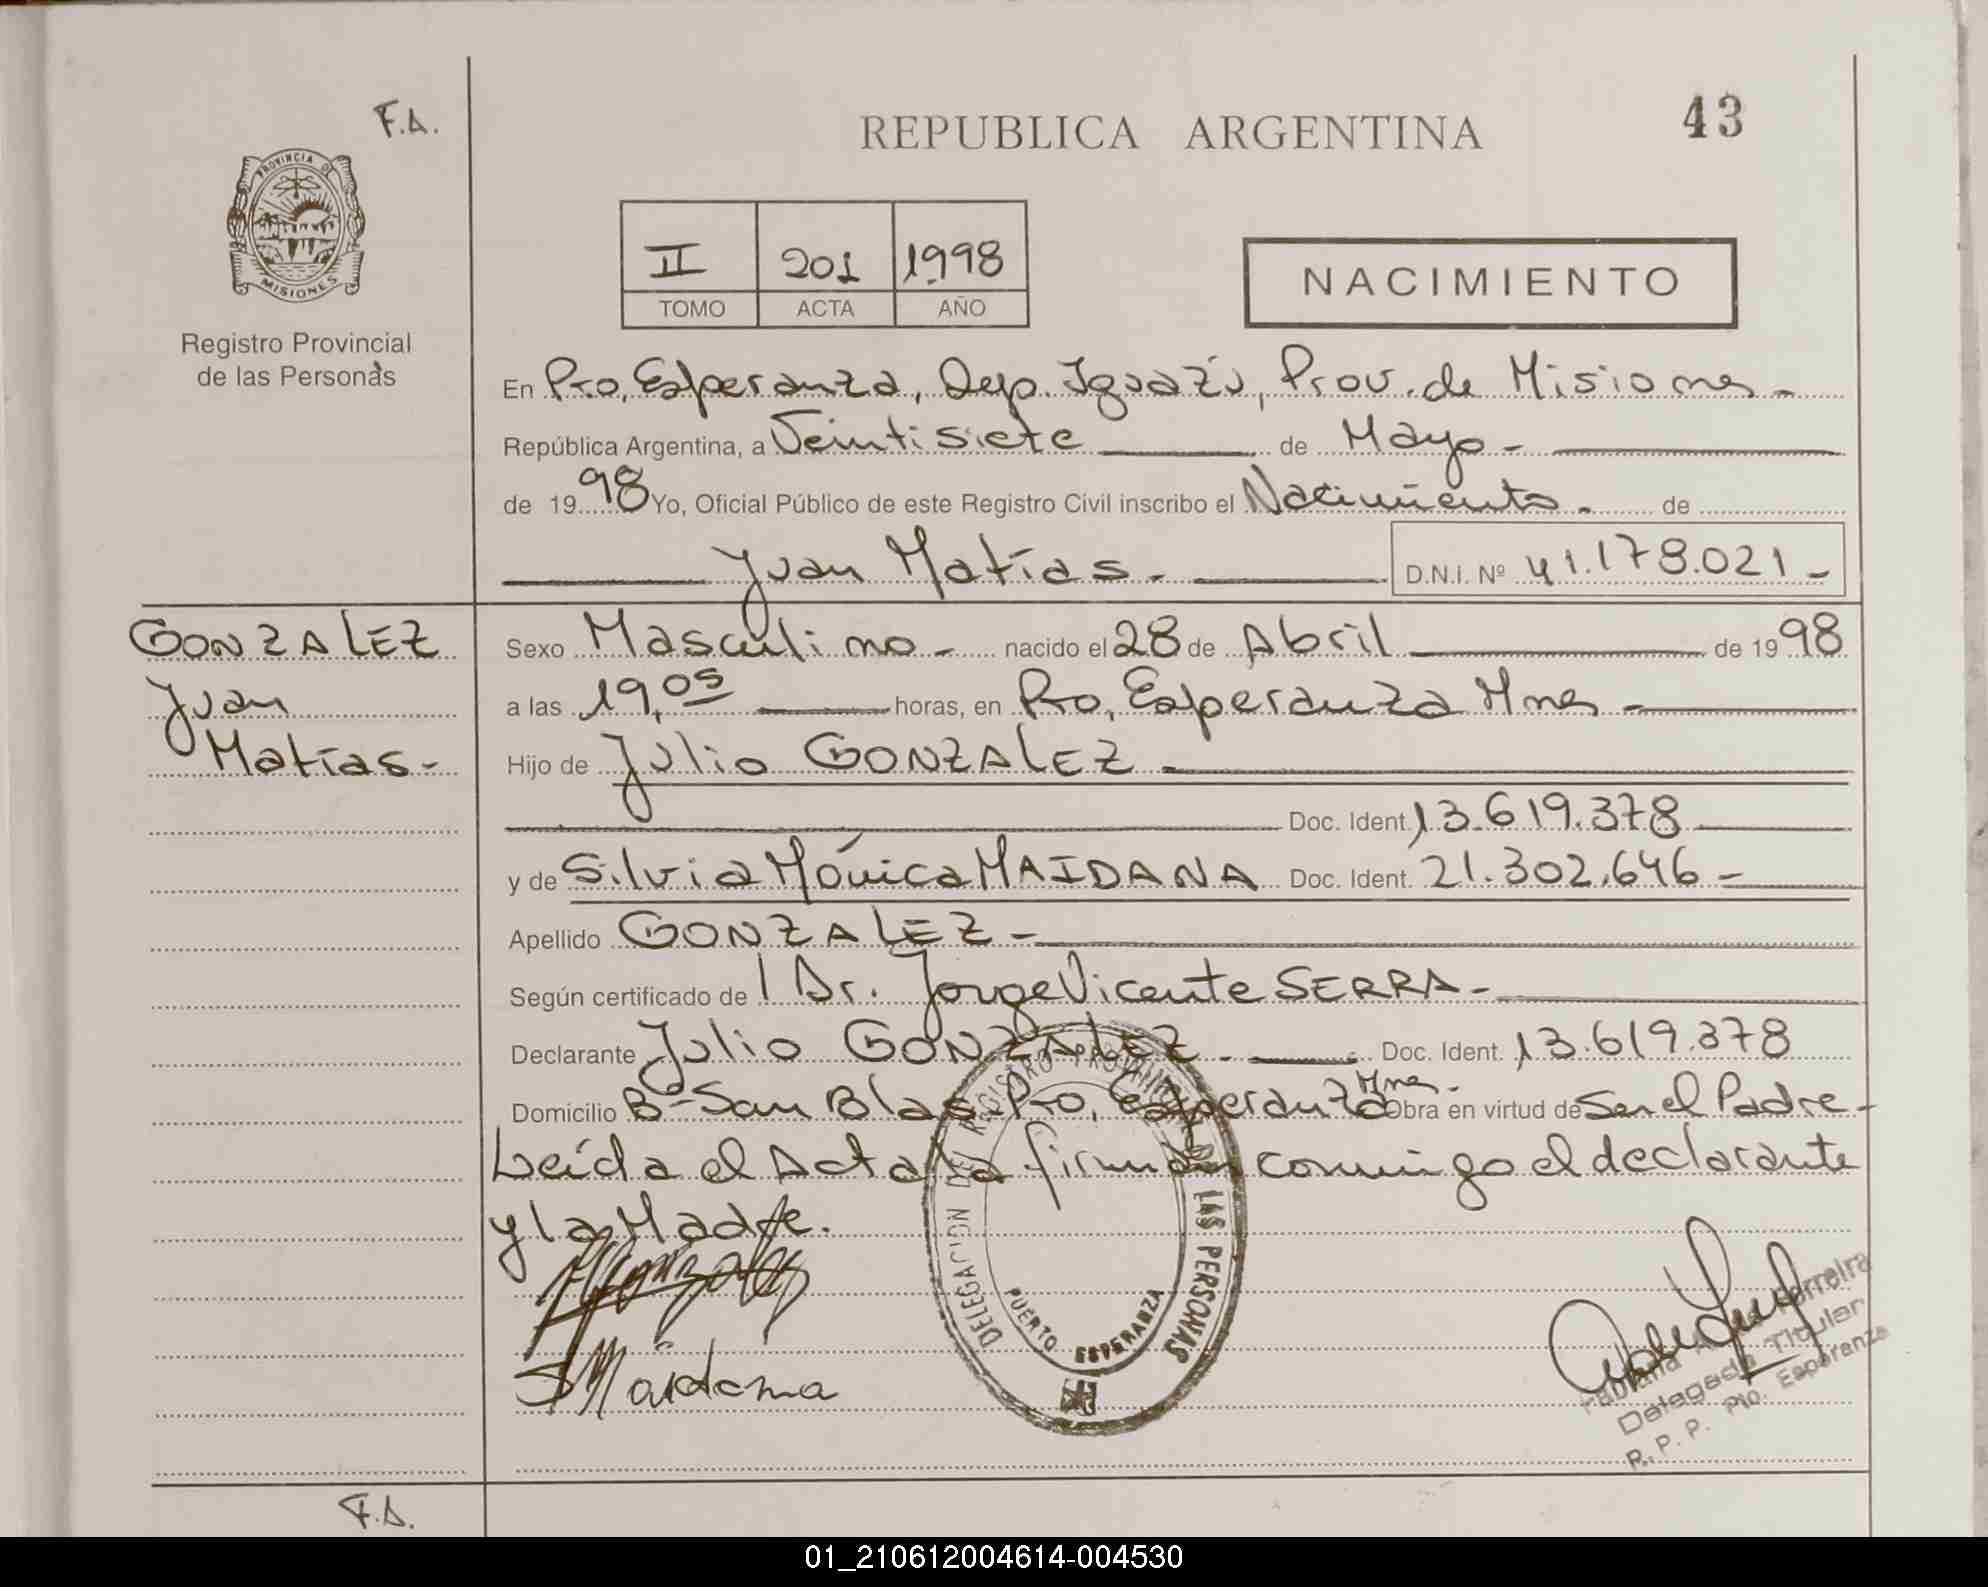 F.A.
REPUBLICA ARGENTINA
43
PROVINCIA DE
MISIONES
Registro Provincial
de las Personas
II 201 1998
TOMO ACTA AÑO
NACIMIENTO
En Pto, Esperanza, Dep. Iguazú, Prov. de Misiones -
República Argentina, a Veintisiete de Mayo -
de 1998 Yo, Oficial Público de este Registro Civil inscribo el Nacimiento - de
Juan Matías - D.N.I. Nº 41.178.021 -
GONZALEZ
Juan
Matías -
Sexo Masculino - nacido el 28 de Abril de 1998
a las 19,05 horas, en Pto, Esperanza Mnes -
Hijo de Julio GONZALEZ -
Doc. Ident. 13.619.378
y de Silvia Mónica MAIDANA Doc. Ident. 21.302.646 -
Apellido GONZALEZ -
Según certificado de l Dr. Jorge Vicente SERRA -
Declarante Julio GONZALEZ - Doc. Ident. 13.619.378
Domicilio Bº San Blas - Pto, Esperanza Mnes - Obra en virtud de Ser el Padre -
Leída el Acta la firman conmigo el declarante
y la Madre.
Gonzalez
SMaidana
DELEGACION DEL REGISTRO PROVINCIAL DE LAS PERSONAS
PUERTO ESPERANZA
Ferreira
Delegada Titular
R. P. P. Pto. Esperanza
F.A.
01_210612004614-004530